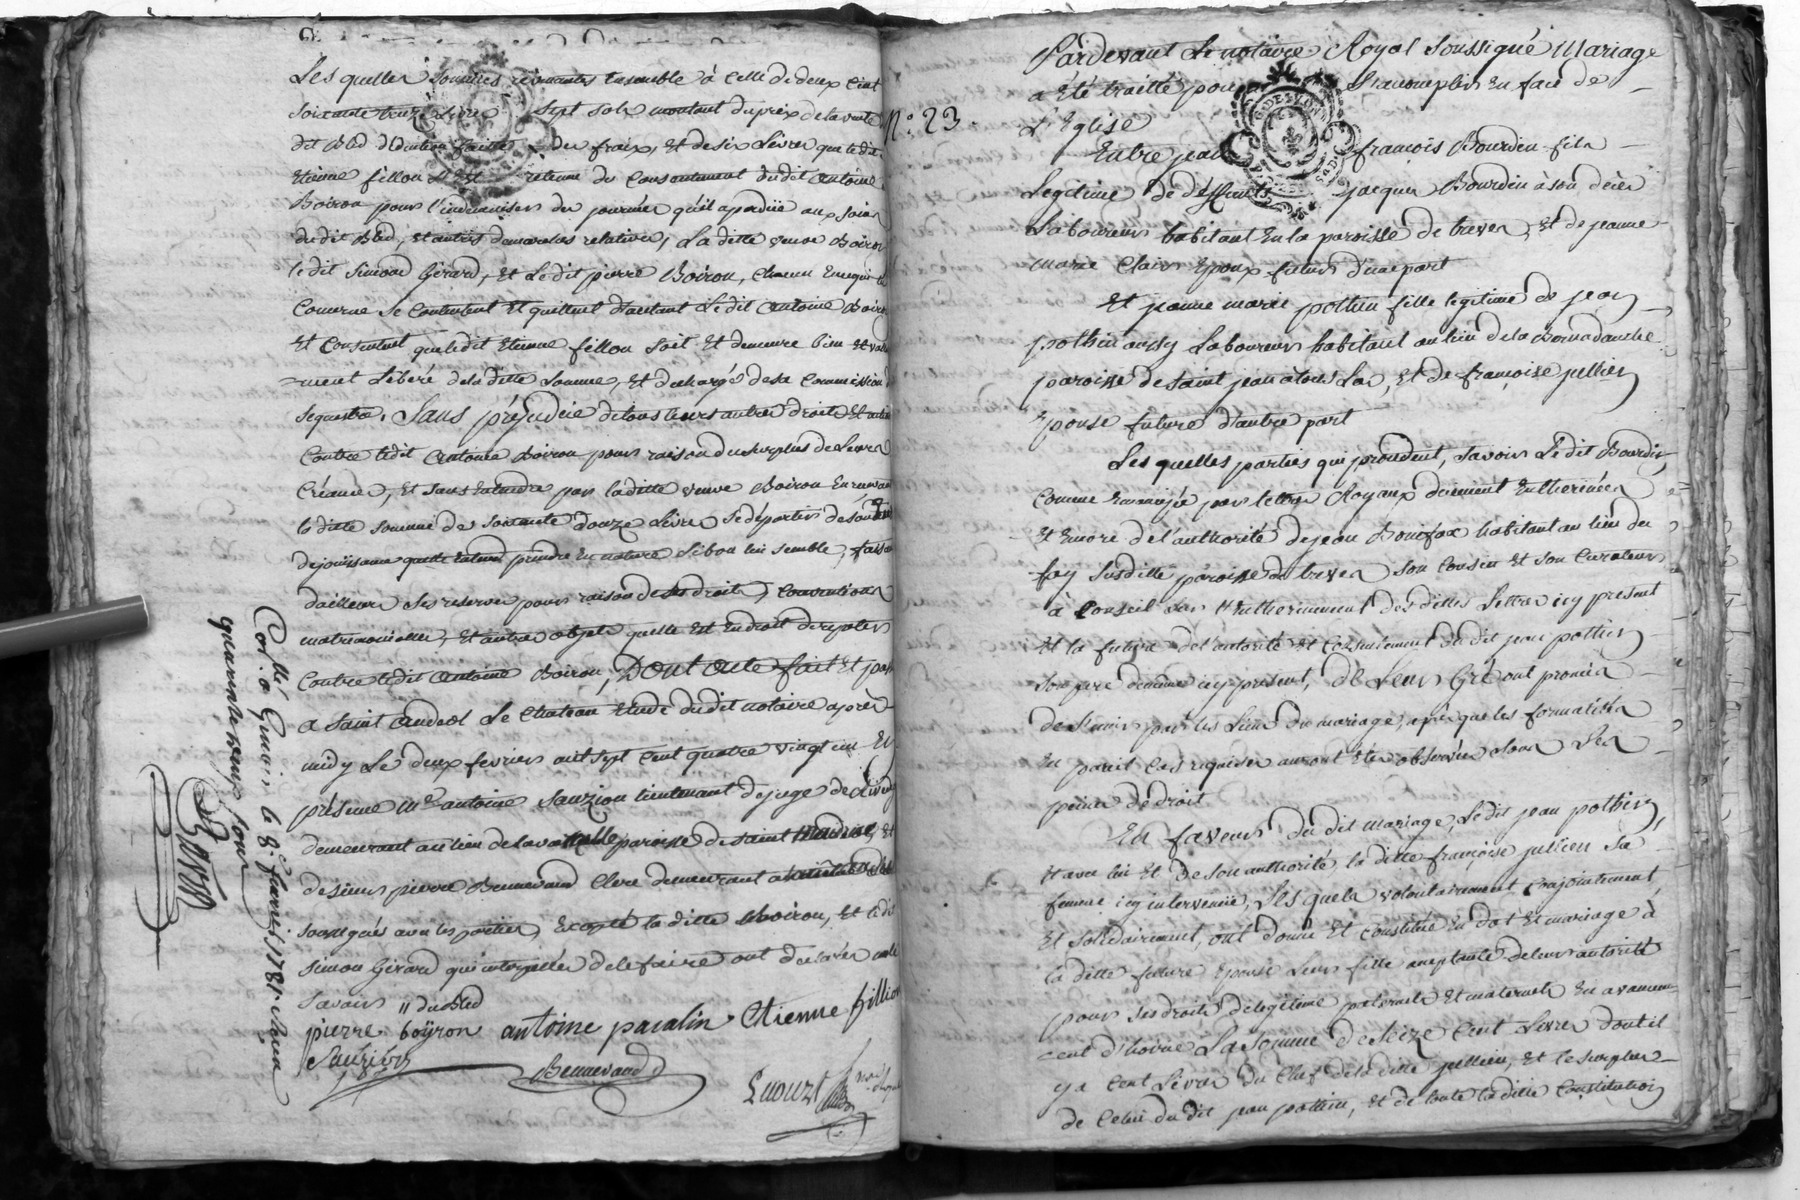 Les quelles sommes revenantes Ensemble à Celle de deux Cent
soixante treize Livre sept sols montant du prix de la vente
dit Bled déduction faitte des fraix, Et de six Livres que le dit
Etienne fillon retenu du Consentement du dit Antoine
Boiron pour l'indemniser des journées qu'il a perdüe aux soins
du dit Bled, Et autres demarches relatives, La ditte veuve Boiron
le dit Simond Girard, Et Le dit pierre Boiron, Chacun En ce qui le
Concerne se Contentent Et quittent d'autant Le dit Antoine Boiron
Et Consentent que le dit Etienne fillon soit Et demeure bien Et vala
=ment Libéré de la ditte somme, Et dechargé de sa Commission de
sequestre, Sans préjudice de tous leurs autres droits Et action
Contre le dit Antoine Boiron pour raison du surplus de Leurs
Créances, Et sans Entendre par la ditte veuve Boiron En recevant
la ditte somme de soixante douze Livres se départir de son
de jouissance qu'elle Entend prendre En nature si bon lui semble, faisant
d'ailleurs ses reserves pour raison de ses droits, Conventions
matrimonialles, Et autres objets qu'elle Est En droit de repeter
Contre le dit Antoine Boiron, Dont acte fait Et passé
a Saint Andeol Le Chateau Etude du dit notaire après
midy Le deux fevrier mil sept cent quatre vingt un En
présence Me antoine Sauzion lieutenant de juge de
demeurant au lieu de paroisse de saint Et
de sieur pierre Bennevand Clerc demeurant a
soussignés avec les parties, Excepté la ditte Boiron, Et le dit
simon Girard qui interpellés de le faire ont declarés ne le
savoir // du Bled
pierre boÿron antoine pacalin Etienne fillion
Sauzion
Bennevand
Collé a le 8e fevrier 1781. Reçu
quarante neuf sous
N.° 23.
Pardevant Le notaire Royal soussigné Mariage
a été traitté pour s'accomplir En face de
L'Eglise
Entre jean françois Bourdin fils
Legitime de deffunts jacques Bourdin à son déces
Laboureur habitant En la paroisse de treves, Et de jeanne
marie Clair Epoux futur d'une part
Et jeanne marie pothin fille legitime de jean
pothin aussy Laboureur habitant au lieu de la
paroisse de saint jean a tous Las, Et de françoise jullien
Epouse future d'autre part
Les quelles parties qui procedent, savoir Le dit Bourdin
Comme Emancipé par lettres Royaux düement Entherinées
Et Encore de l'authorité de jean Bonifax habitant au lieu du
fay susditte paroisse de treves son Cousin Et son Curateur
à Conseil par l'Entherinement des dittes Lettres icy present
Et la future de l'autorité Et Consentement du dit jean pothin
son pere Comme icy présent, de Leurs Gré ont promis
de s'unir par les Liens du mariage, après que les formalités
En pareil Cas requises auront étés observées sous Les
peines de droit
En faveur du dit mariage, Le dit jean pothin,
Et avec lui Et de son authorité, la ditte françoise jullien sa
femme icy intervenue, Lesquels volontairement Conjointement,
Et solidairement, ont donné Et Constitué En dot Et mariage à
la ditte future Epouse Leur fille acceptante de leur autorité
pour ses droits de legitime paternels Et maternels En avance=
cent d'hoirie La somme de seize Cent Livres dont il
y a Cent Livres du Chef de la ditte jullien, Et le surplus
de Celui du dit jean pothin, Et de toute la ditte Constitution